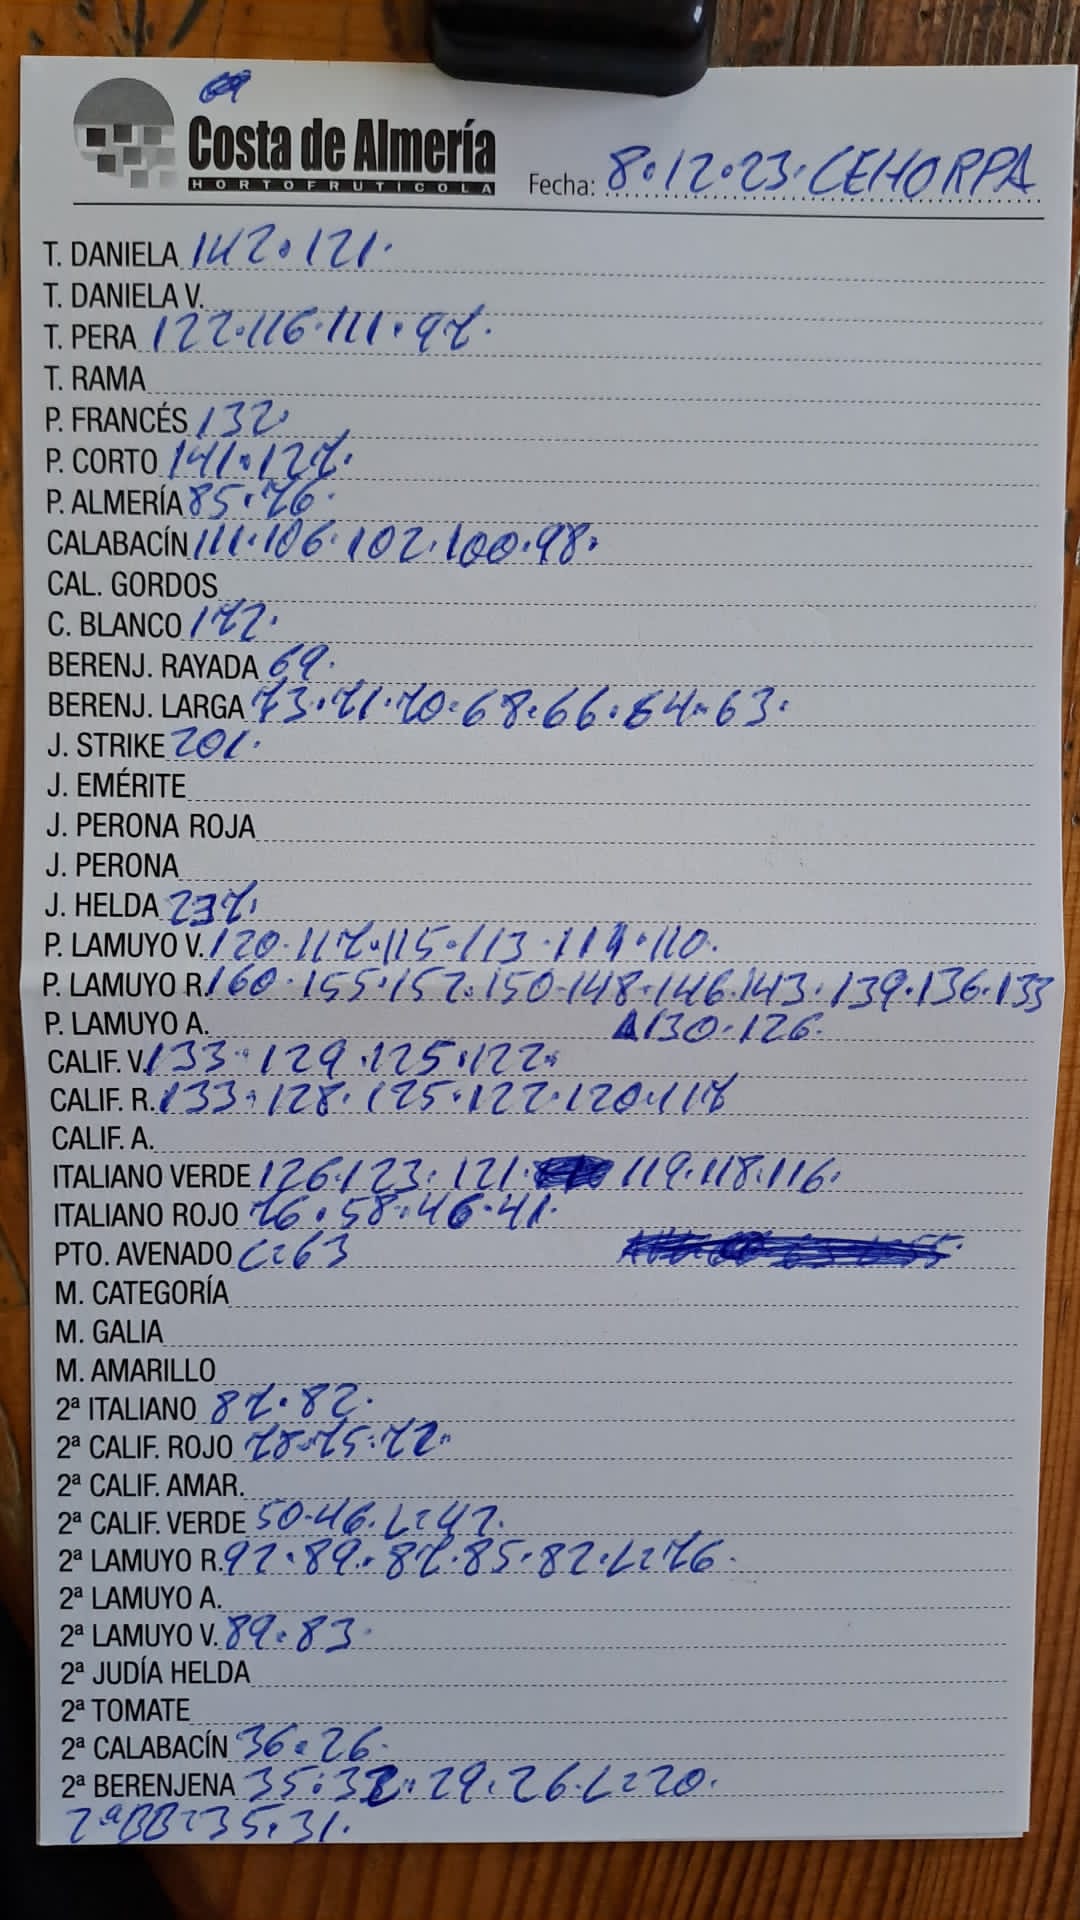 Costa de Almería
HORTOFRUTICOLA
Fecha: 8.12.23. CEHORPA
T. DANIELA 142.121.
T. DANIELA V.
T. PERA 122.116.111.97.
T. RAMA
P. FRANCÉS 132
P. CORTO 141.127.
P. ALMERÍA 85.76.
CALABACÍN 111.106.102.100.98.
CAL. GORDOS
C. BLANCO 172.
BERENJ. RAYADA 69.
BERENJ. LARGA 73.71.70.68.66.64.63.
J. STRIKE 201.
J. EMÉRITE
J. PERONA ROJA
J. PERONA
J. HELDA 237.
P. LAMUYO V. 120.117.115.113.111.110.
P. LAMUYO R. 160.155.152.150.148.146.143.139.136.133
P. LAMUYO A. 130.126.
CALIF. V. 133.129.125.122.
CALIF. R. 133.128.125.122.120.117
CALIF. A.
ITALIANO VERDE 126.123.121. 119.118.116.
ITALIANO ROJO 76.58.46.41.
PTO. AVENADO L=63
M. CATEGORÍA
M. GALIA
M. AMARILLO
2ª ITALIANO 87.82.
2ª CALIF. ROJO 78.75.72.
2ª CALIF. AMAR.
2ª CALIF. VERDE 50.46.L=42.
2ª LAMUYO R. 92.89.87.85.82.L=76.
2ª LAMUYO A.
2ª LAMUYO V. 89.83.
2ª JUDÍA HELDA
2ª TOMATE
2ª CALABACÍN 36.26.
2ª BERENJENA 35.32.29.26.L=20.
2ªBB=35.31.